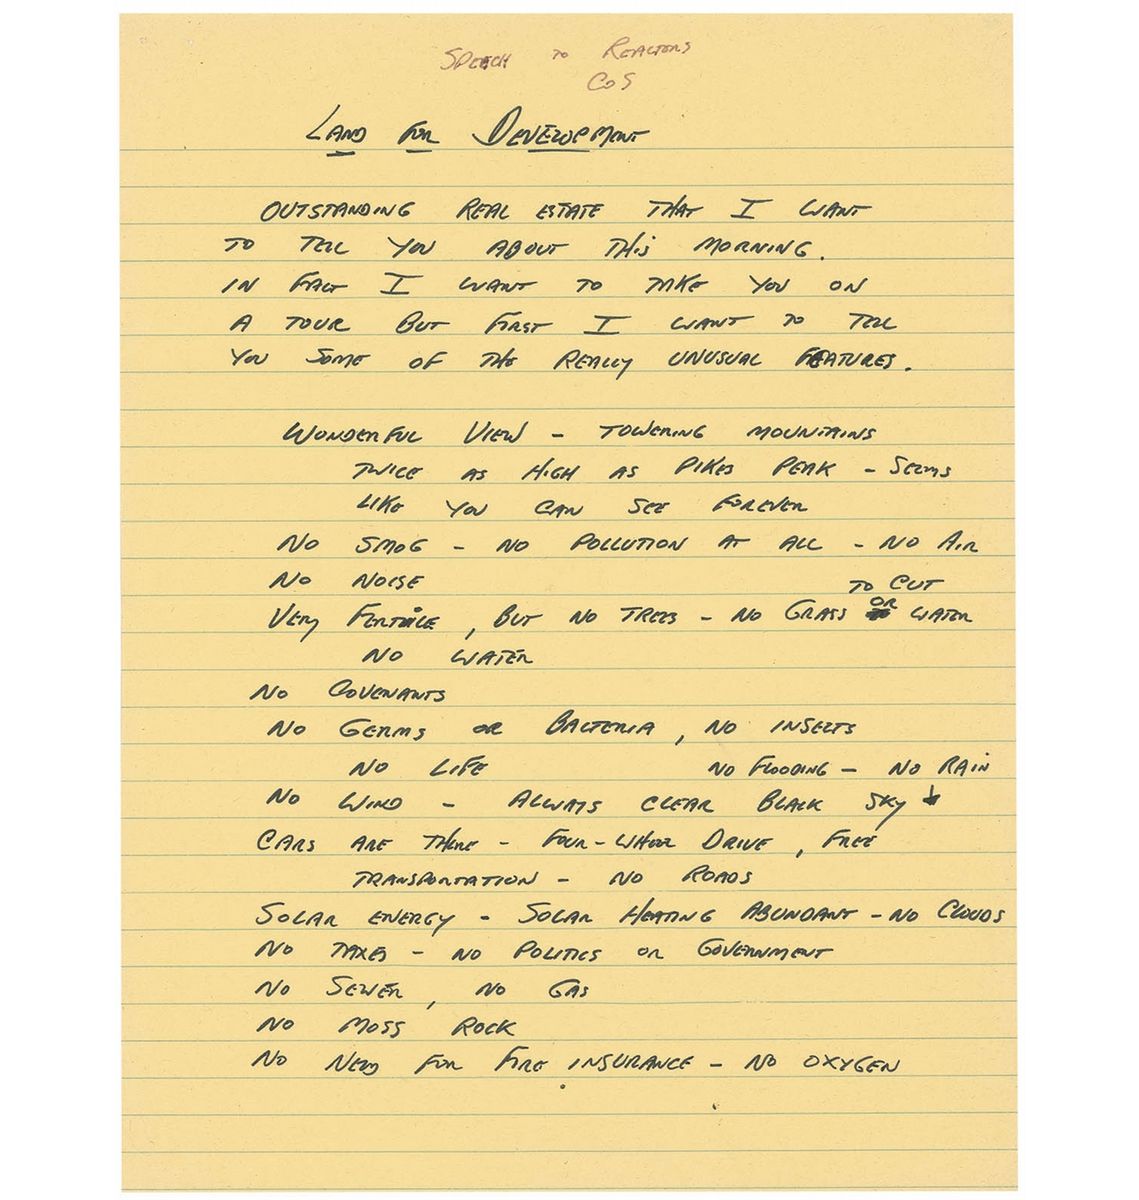 SPEECH TO REALTORS
COS
LAND FOR DEVELOPMENT
OUTSTANDING REAL ESTATE THAT I WANT
TO TELL YOU ABOUT THIS MORNING.
IN FACT I WANT TO TAKE YOU ON
A TOUR BUT FIRST I WANT TO TELL
YOU SOME OF THE REALLY UNUSUAL FEATURES.
WONDERFUL VIEW - TOWERING MOUNTAINS
TWICE AS HIGH AS PIKES PEAK - SEEMS
LIKE YOU CAN SEE FOREVER
NO SMOG - NO POLLUTION AT ALL - NO AIR
NO NOISE
TO CUT
VERY FERTILE, BUT NO TREES - NO GRASS OR WATER
NO WATER
NO COVENANTS
NO GERMS OR BACTERIA, NO INSECTS
NO LIFE NO FLOODING - NO RAIN
NO WIND - ALWAYS CLEAR BLACK SKY
CARS ARE THERE - FOUR-WHEEL DRIVE, FREE
TRANSPORTATION - NO ROADS
SOLAR ENERGY - SOLAR HEATING ABUNDANT - NO CLOUDS
NO TAXES - NO POLITICS OR GOVERNMENT
NO SEWER, NO GAS
NO MOSS ROCK
NO NEED FOR FIRE INSURANCE - NO OXYGEN